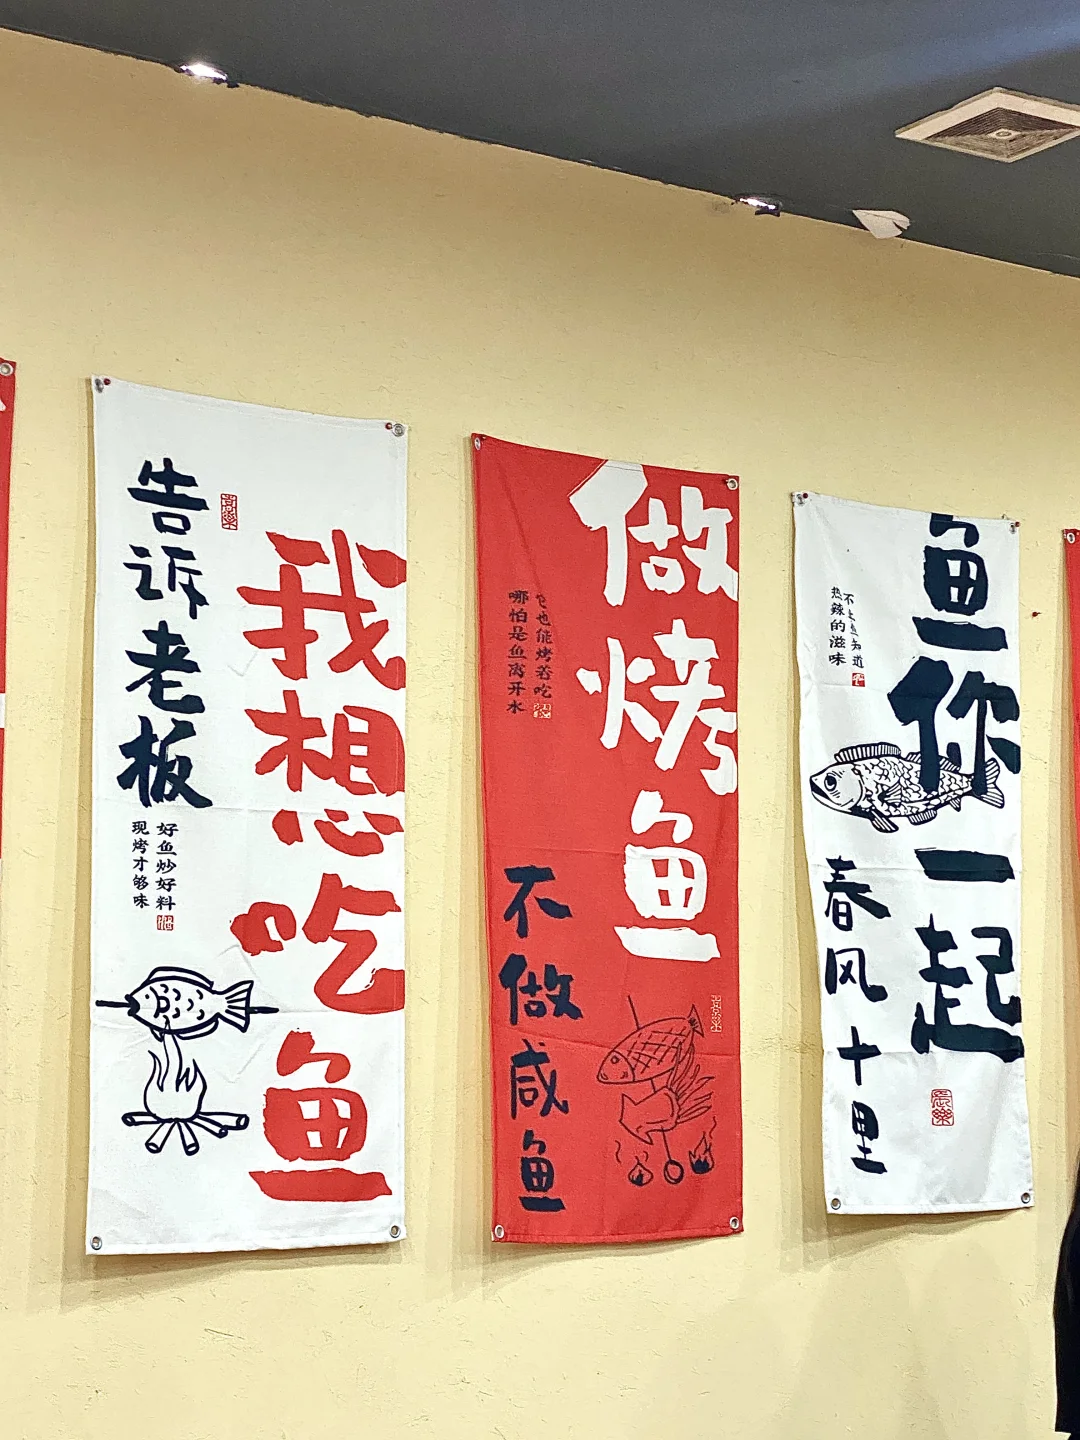 告诉老板
我想吃鱼
好鱼炒好料
现烤才够味
做烤鱼
哪怕是鱼离开水
它也能烤着吃
不做咸鱼
鱼你一起
知道
热辣的滋味
春风十里